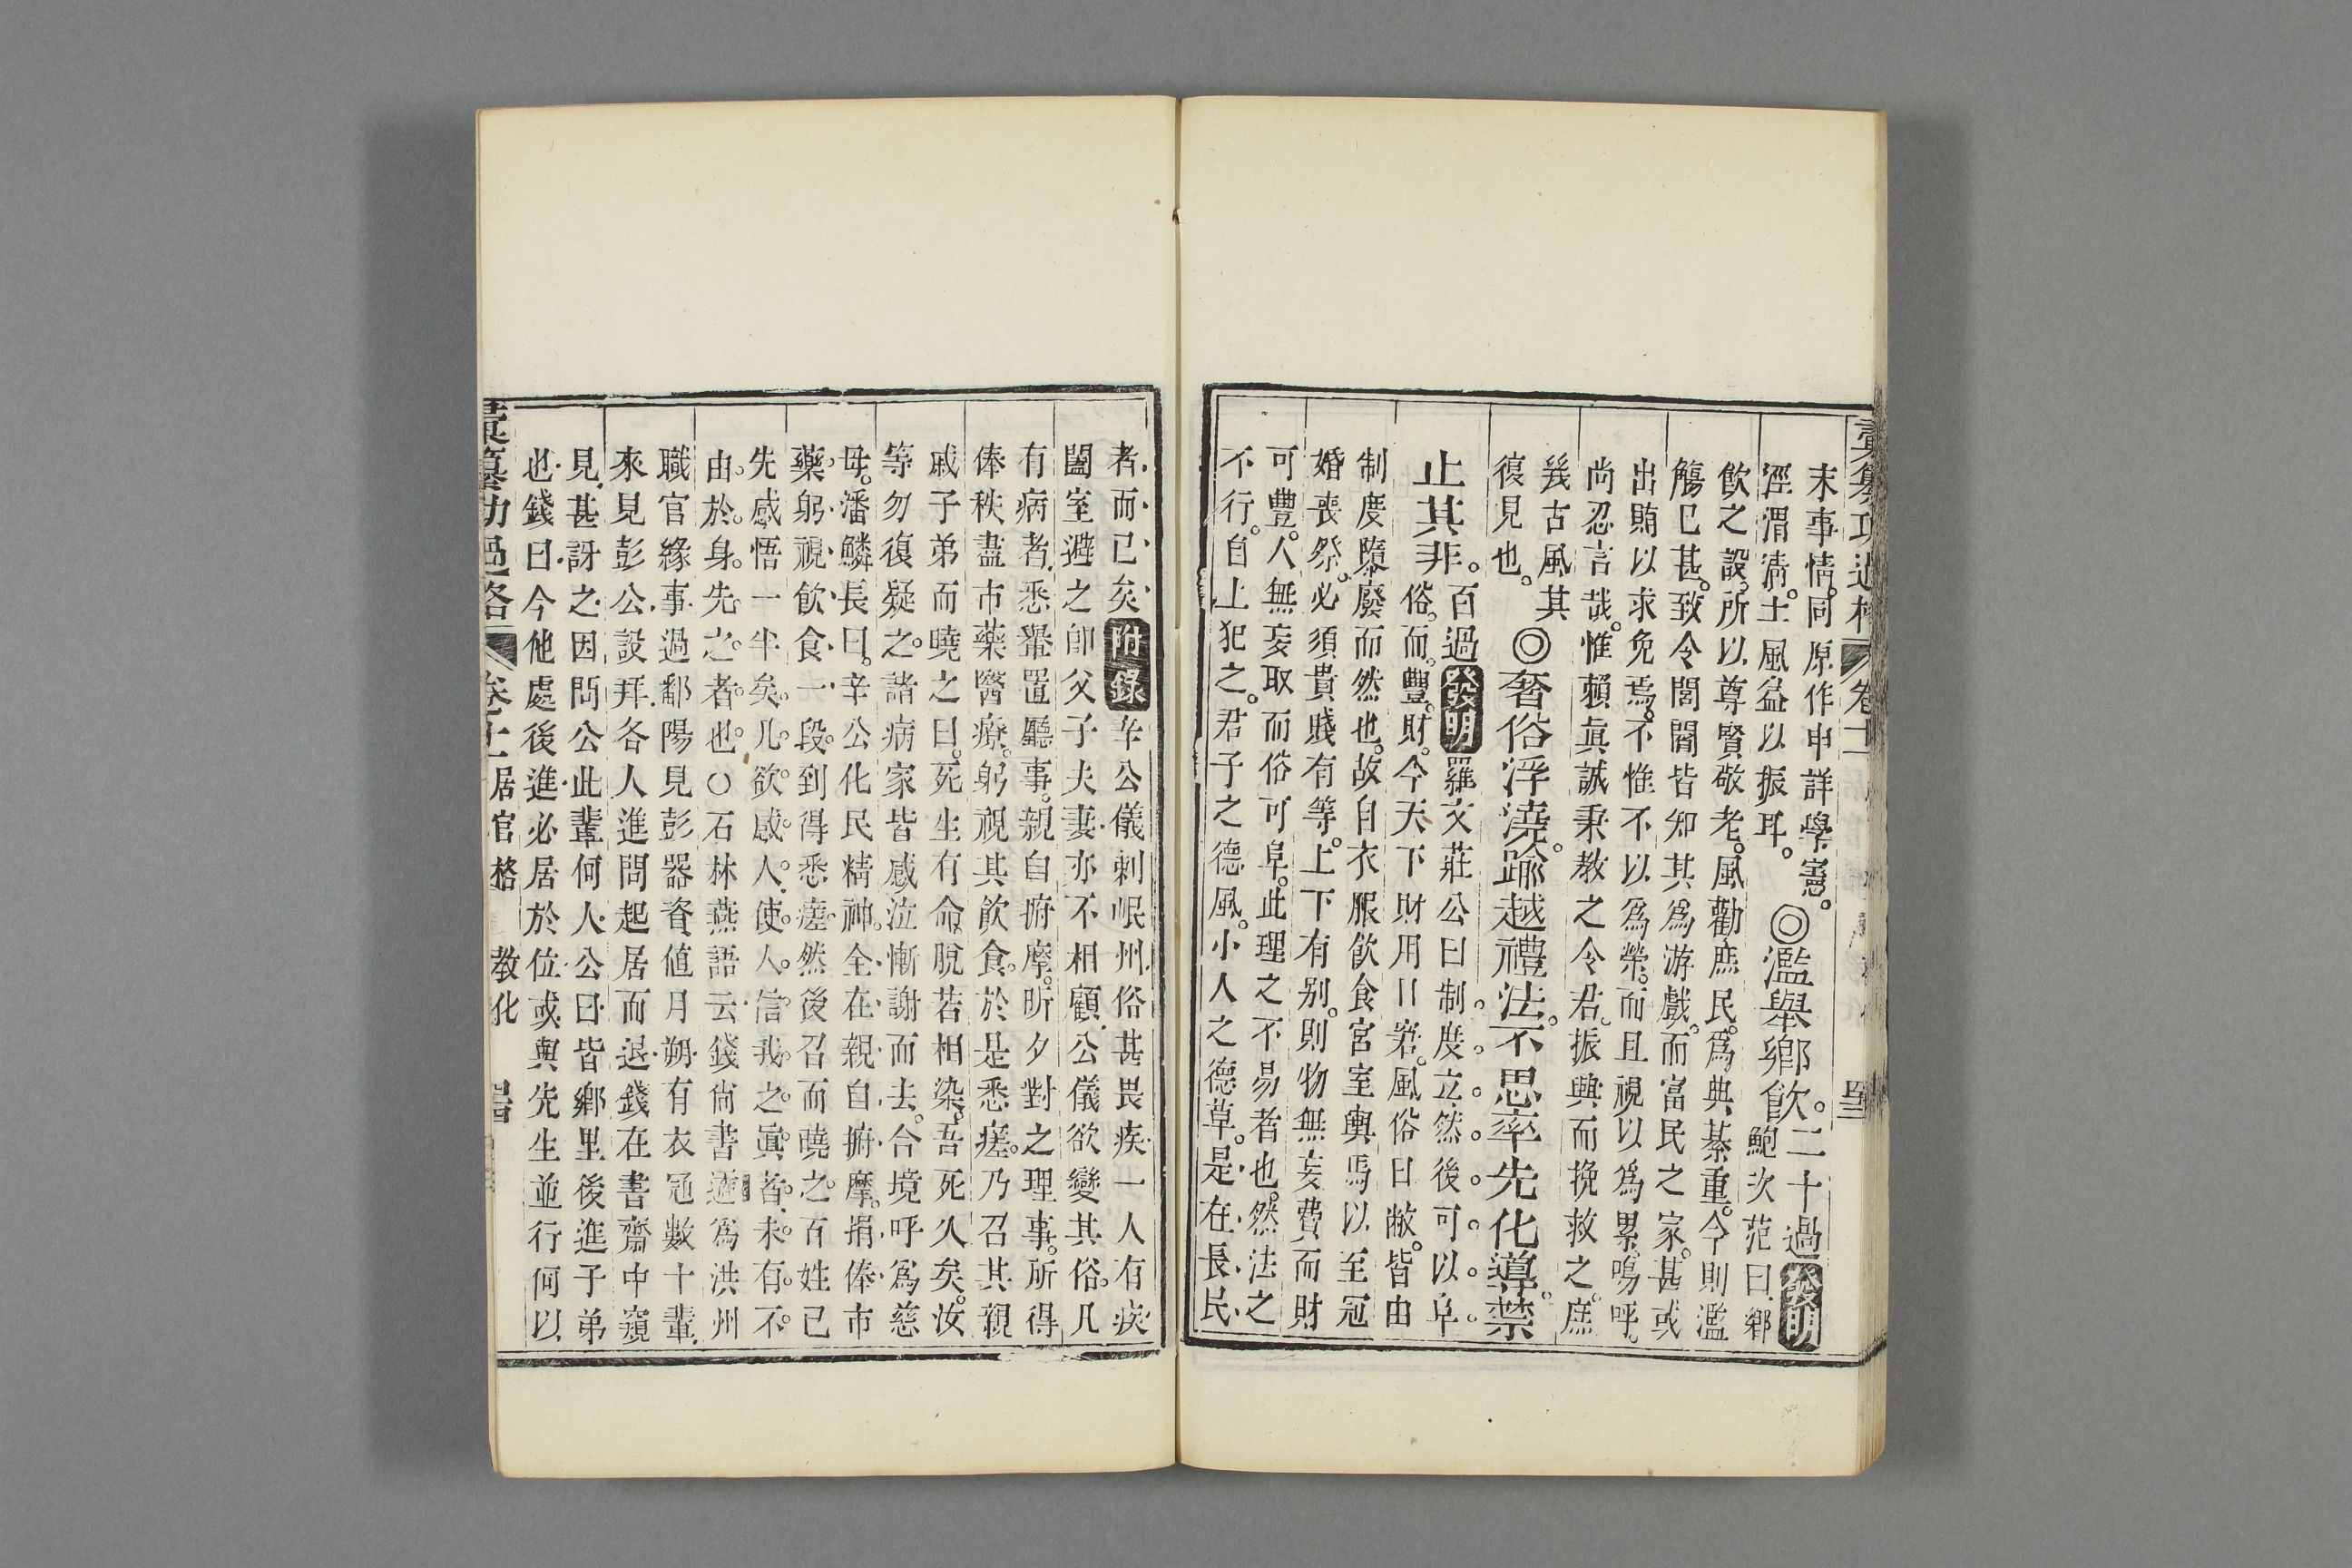 彙纂功過格 卷十一
末事情。同原作申詳學憲。
涇渭淸。士風益以振耳。◎濫舉鄉飲。二十過發明
鮑次范曰鄉
飲之設。所以尊賢敬老。風勸庶民。爲典綦重。今則濫
觴已甚。致令閭閻皆知其爲游戲。而富民之家。甚或
出賄以求免焉。不惟不以爲榮。而且視以爲累。嗚呼。
尚忍言哉。惟賴眞誠秉教之令君。振興而挽救之。庶
幾古風其
復見也。◎奢俗浮澆。踰越禮法。不思率先化導。禁
止其非。百過發明羅文莊公曰制度立然後可以阜
俗。而豐財。今天下財用日窘。風俗日敝。皆由
制度隳廢而然也。故自衣服飲食宮室輿馬以至冠
婚喪祭。必須貴賤有等。上下有别。則物無妄費而財
可豐。人無妄取而俗可阜。此理之不易者也。然法之
不行。自上犯之。君子之德風。小人之德草。是在長民
者而已矣附錄辛公儀刺岷州俗甚畏疾一人有疾
闔室避之卽父子夫妻亦不相顧公儀欲變其俗。凡
有病者悉轝置廳事。親自拊摩。昕夕對之理事。所得
俸秩盡市藥醫療。躬視其飲食。於是悉瘥。乃召其親
戚子弟而曉之曰。死生有命脫若相染。吾死久矣。汝
等勿復疑之。諸病家皆感泣慚謝而去。合境呼爲慈
母。潘鱗長曰。辛公化民精神。全在親自拊摩。捐俸市
藥躬視飲食一段。到得悉瘥然後召而曉之。百姓已
先感悟一半矣。凡欲感人。使人信我之眞者。未有不
由於身先之者也。○石林燕語云錢尙書遹爲洪州
職官緣事過鄱陽見彭器資値月朔有衣冠數十輩
來見彭公設拜各人進問起居而退錢在書齋中窺
見甚訝之因問公此輩何人公曰皆鄉里後進子弟
也錢曰今他處後進必居於位或與先生並行何以
彙纂功過格 卷十一 居官格 教化